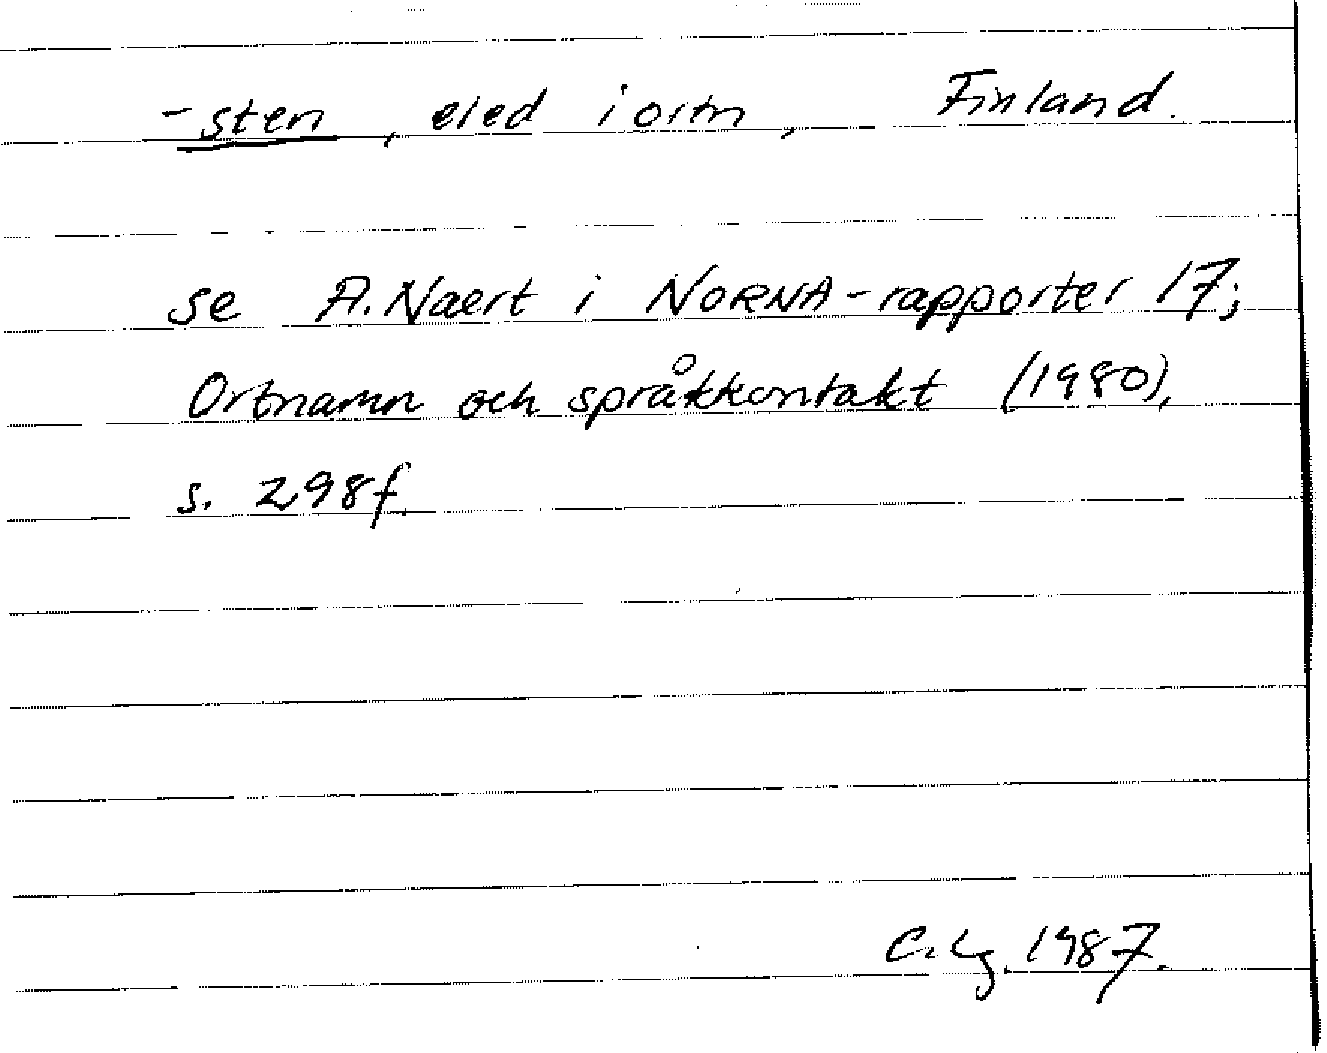 -sten, eled i ortn, Finland.
se A. Naert i NORNA-rapporter 17;
Ortnamn och språkkontakt (1980),
s. 298f.
C. Lg. 1987.